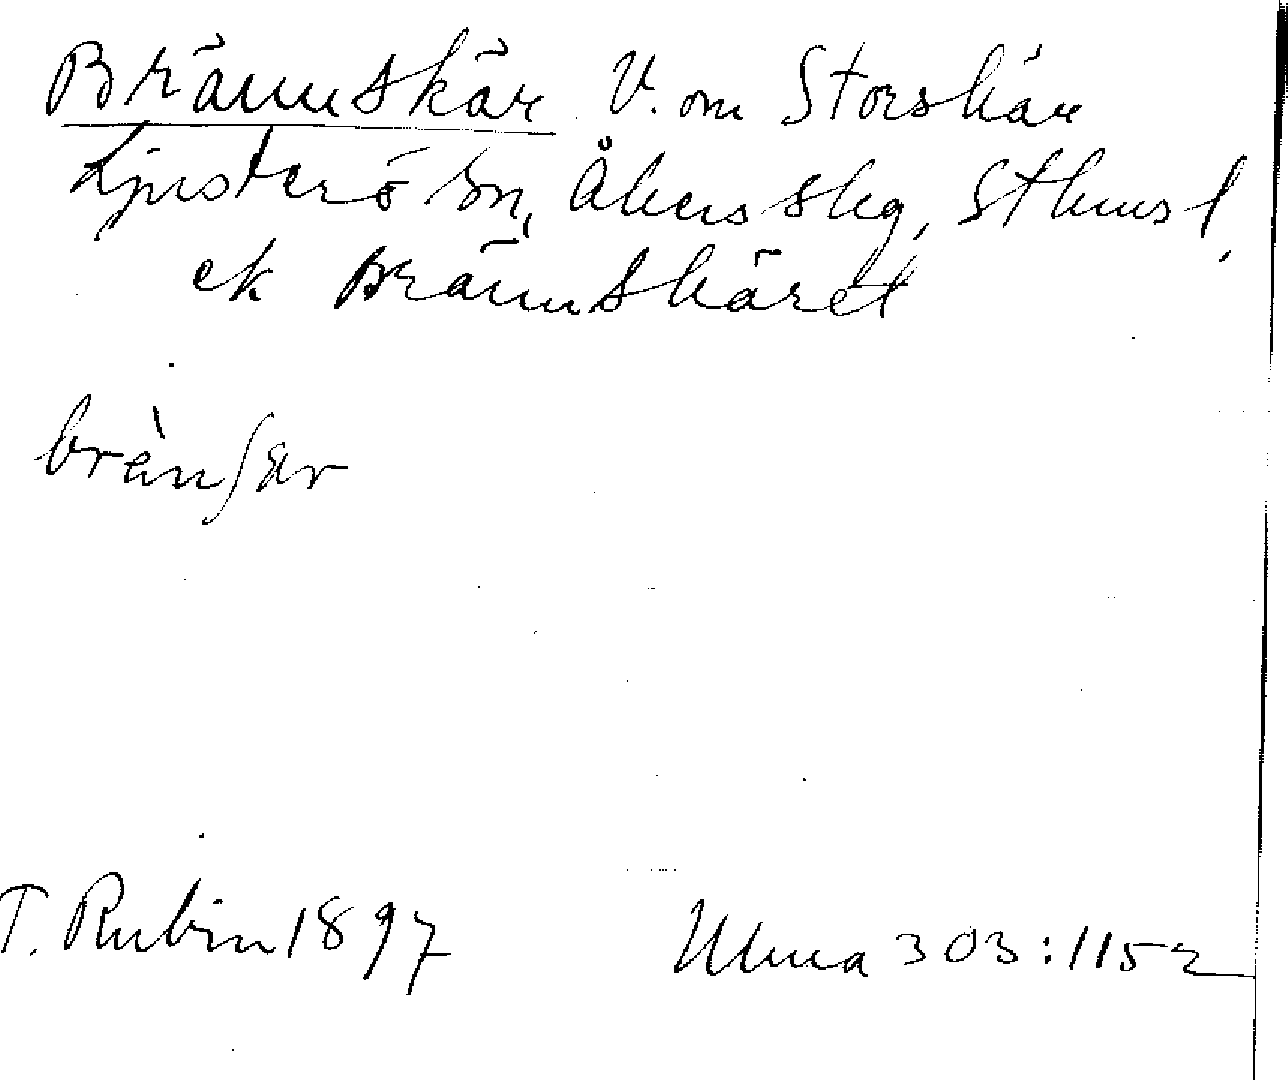 Brännskär V. om Storskär
Ljusterö sn, Åkers skg, Sthms l,
ek Brännskäret
brènʃær
T. Rubin 1897 Ulma 303:1152